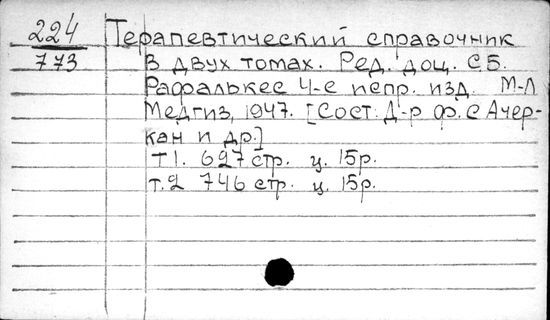 224 Терапевтический справочник
773 в двух томах. Ред. доц. С.Б.
Рафалькес 4-е испр. изд. М-Л
Медгиз, 1947. [Сост: Д-р ф. С Ачер-
кан и др.]
Т1. 627 стр. ц. 15р.
т.2 746 стр. ц. 15р.